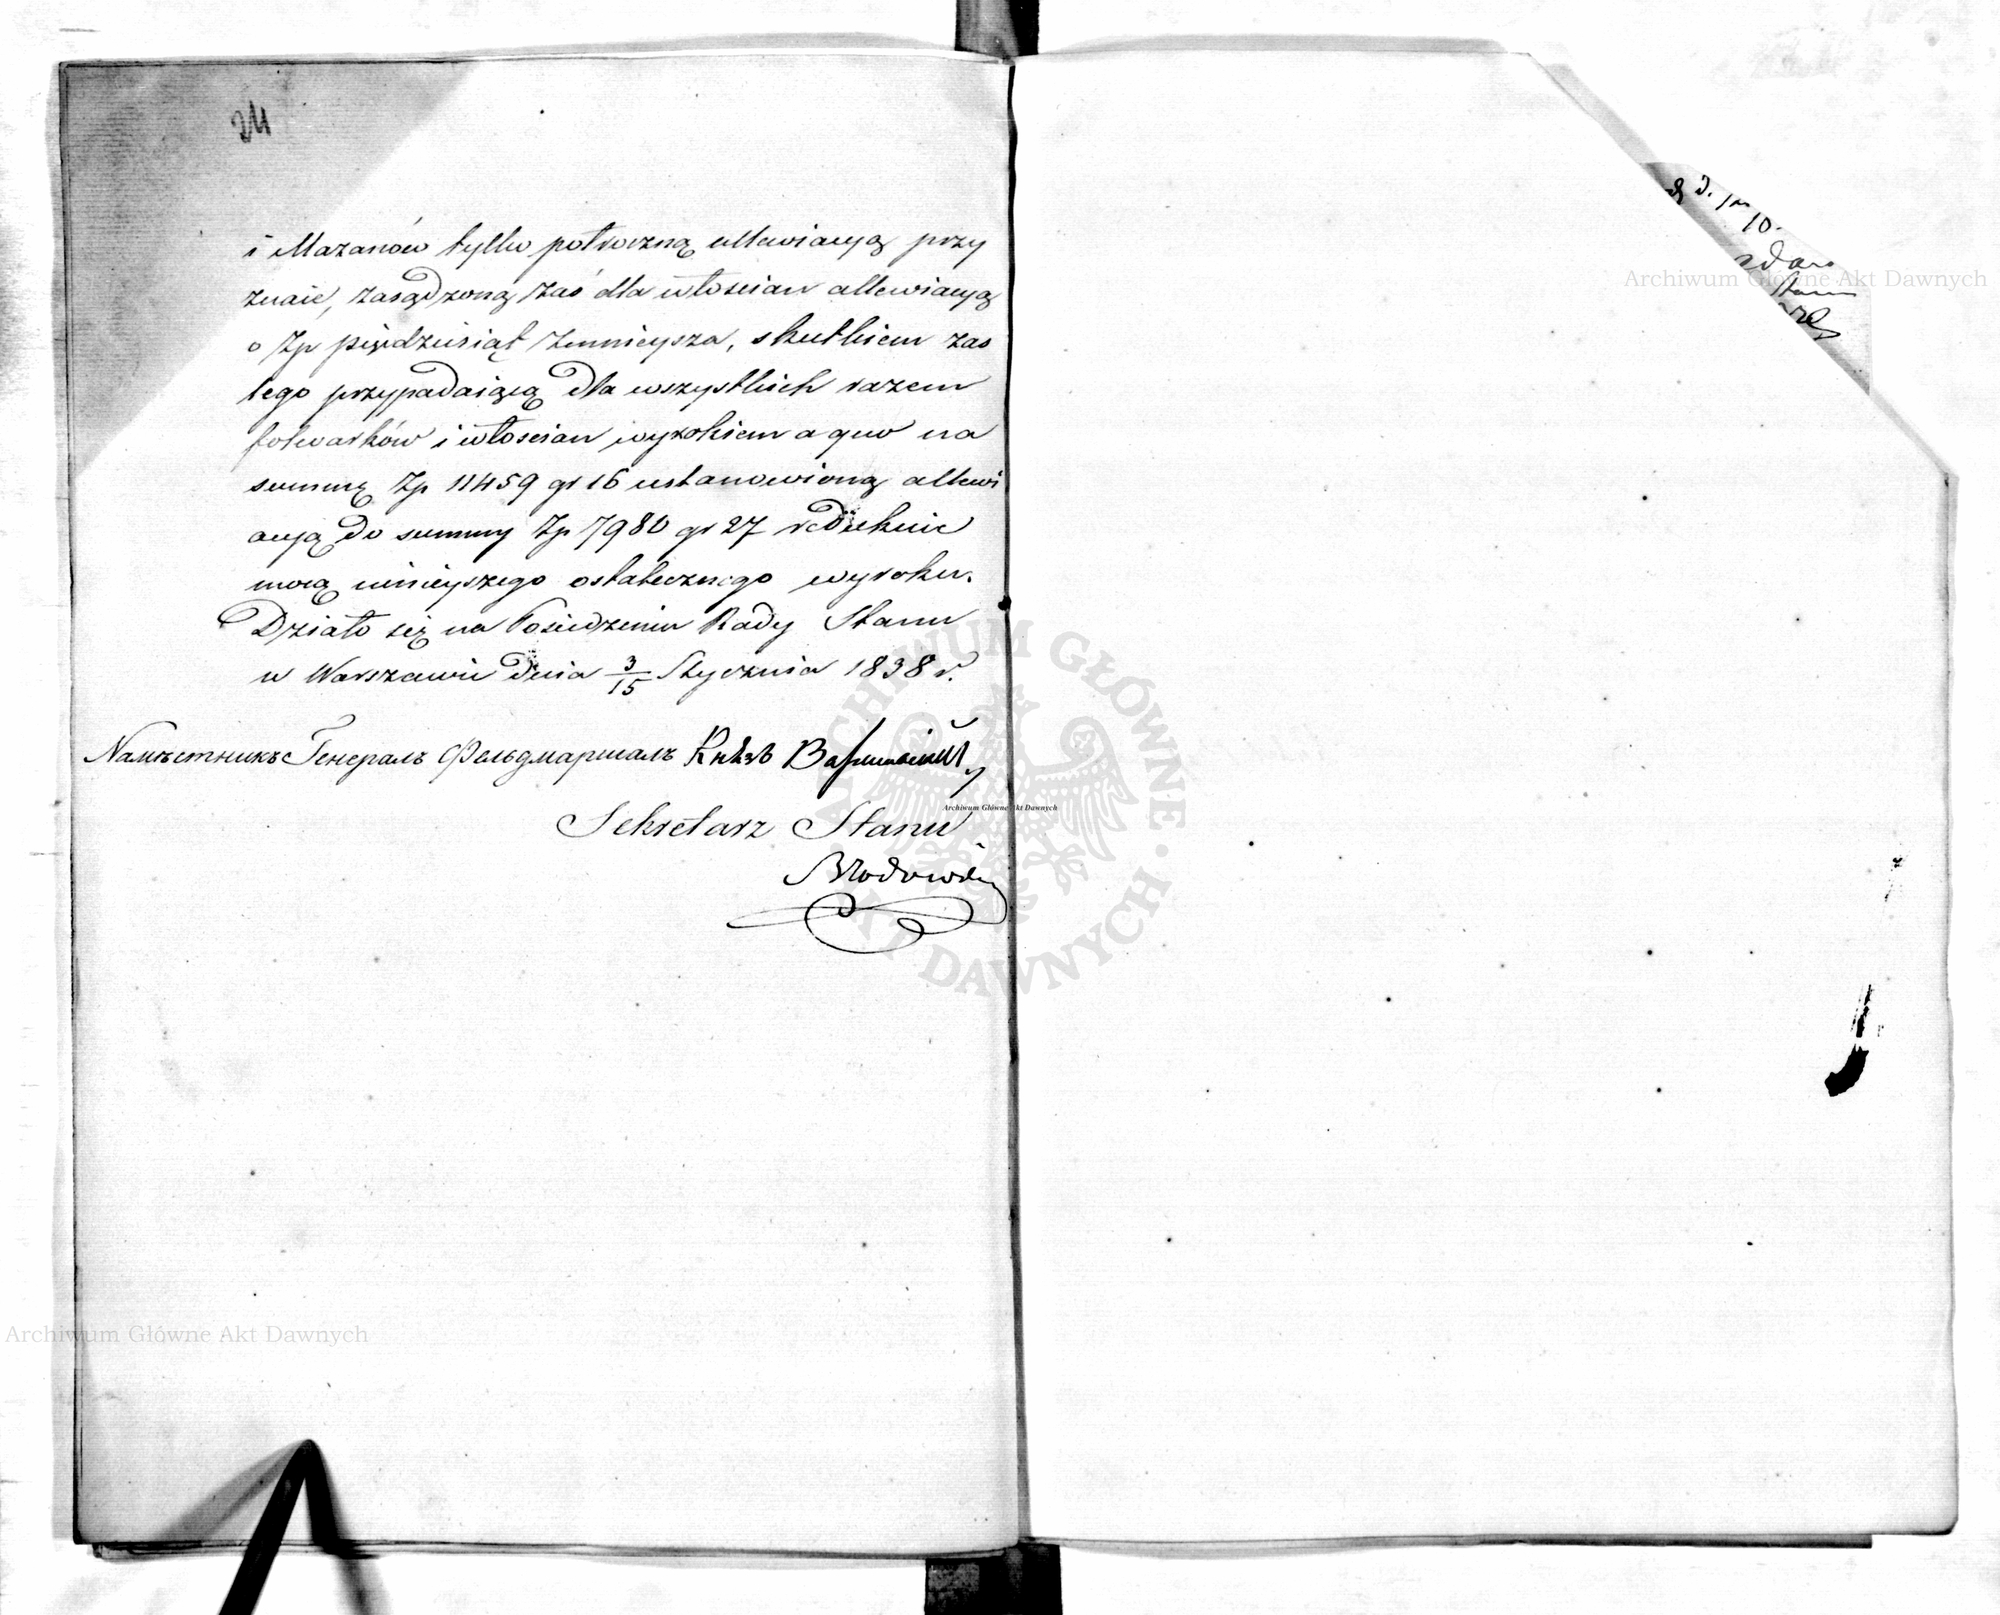 24
i Mazanów tylko pôłroczną allewiacyą przy
znaie, zasądzoną zaś dla włościan allewiacyą
o Zp pięćdziesiąt zmnieysza, skutkiem zaś
tego przypadaiącą dla wszystkich razem
folwarków i włościan wyrokiem a quo na
summę Zp 11459 gr 16 ustanowioną allewi
acyą do summy Zp 7980 gr 27 redukuie
mocą ninieyszego ostatecznego wyroku.
Działo się na Posiedzeniu Rady Stanu
w Warszawie dnia 3/15 Stycznia 1838 r.
Намѣстникъ Генералъ Фельдмаршалъ Князь Варшавскій
Sekretarz Stanu
Brodowski
10.
Archiwum Główne Akt Dawnych
Archiwum Główne Akt Dawnych
Archiwum Główne Akt Dawnych
ARCHIWUM GŁÓWNE AKT DAWNYCH